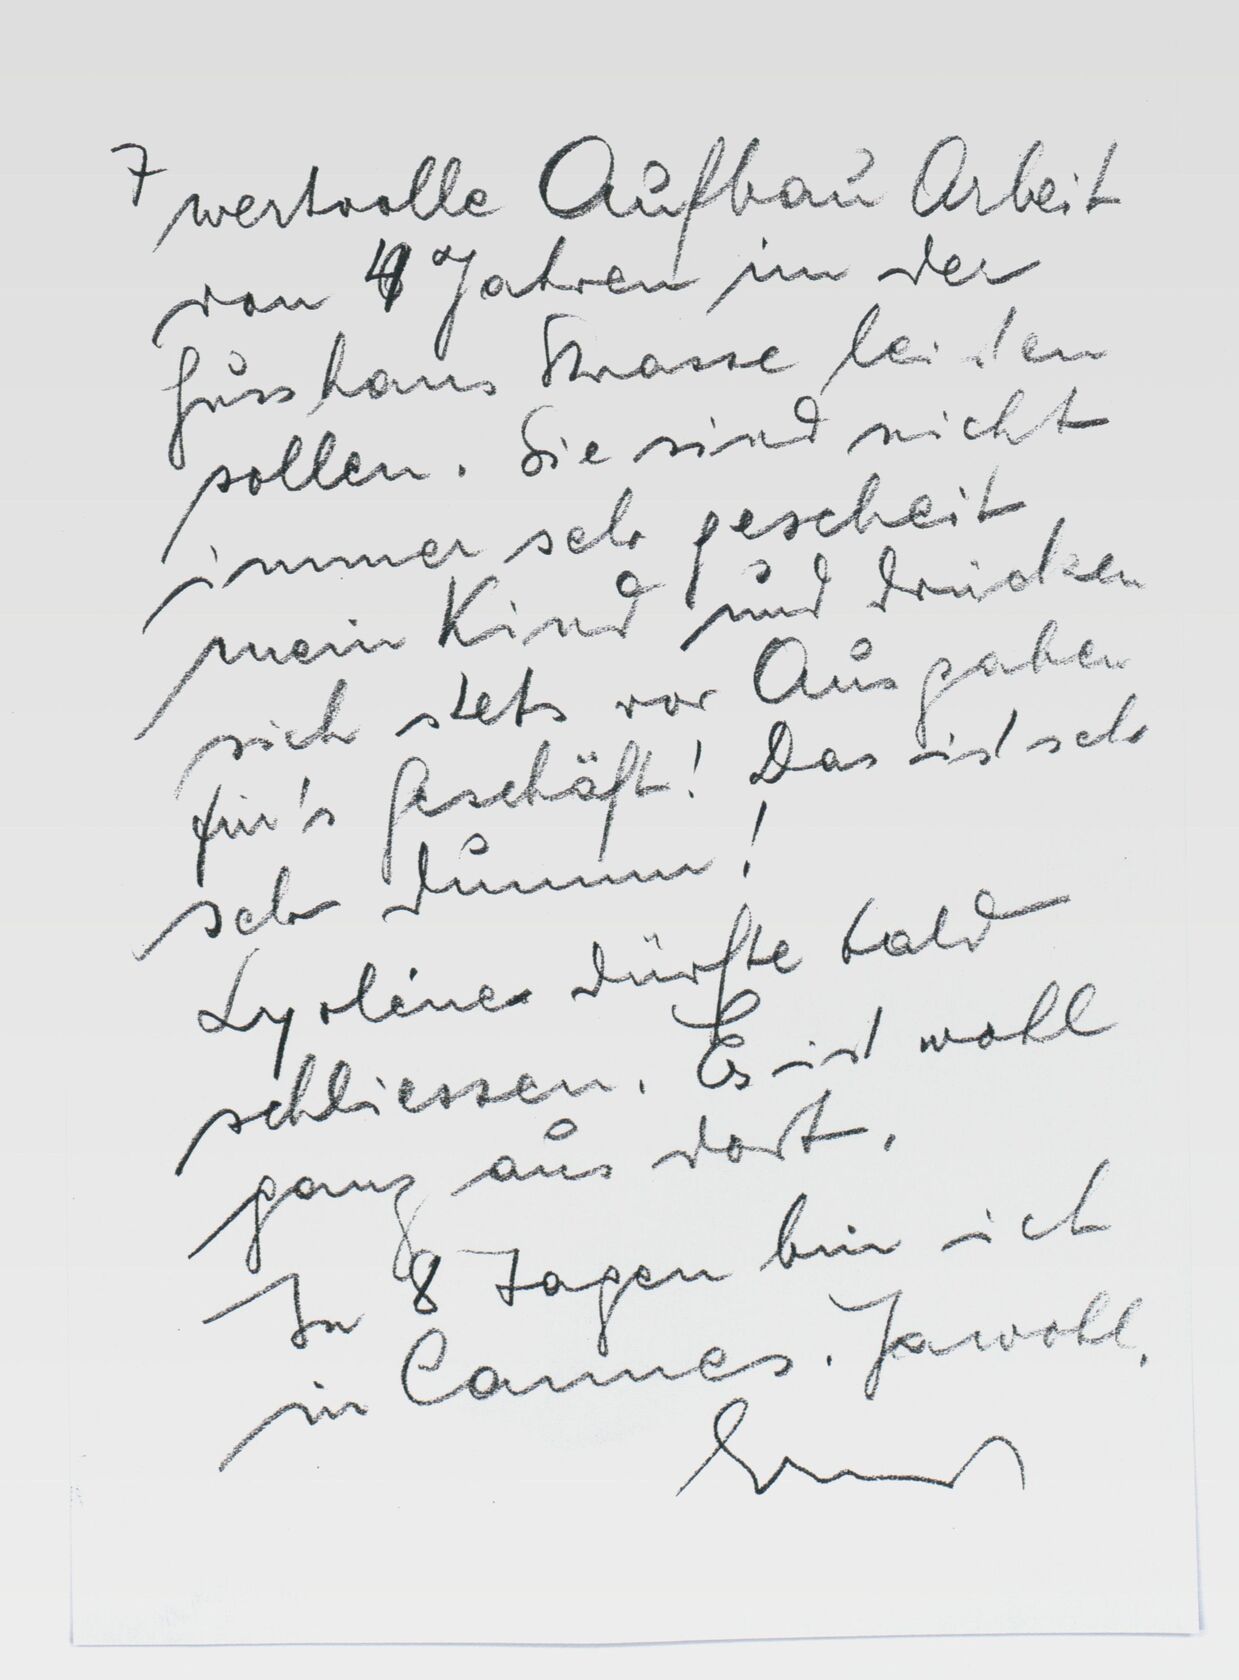 7
wertvolle Aufbau Arbeit
von Jahren in der
Gusshaus Strasse leiden
sollen. Sie sind nicht
immer sehr gescheit
mein Kind und drücken
sich stets vor Ausgaben
für's Geschäft! Das ist sehr
sehr dumm!
dürfte bald
schliessen. Es ist wohl
ganz aus dort.
In 8 Tagen bin ich
in Cannes. Jawohl.